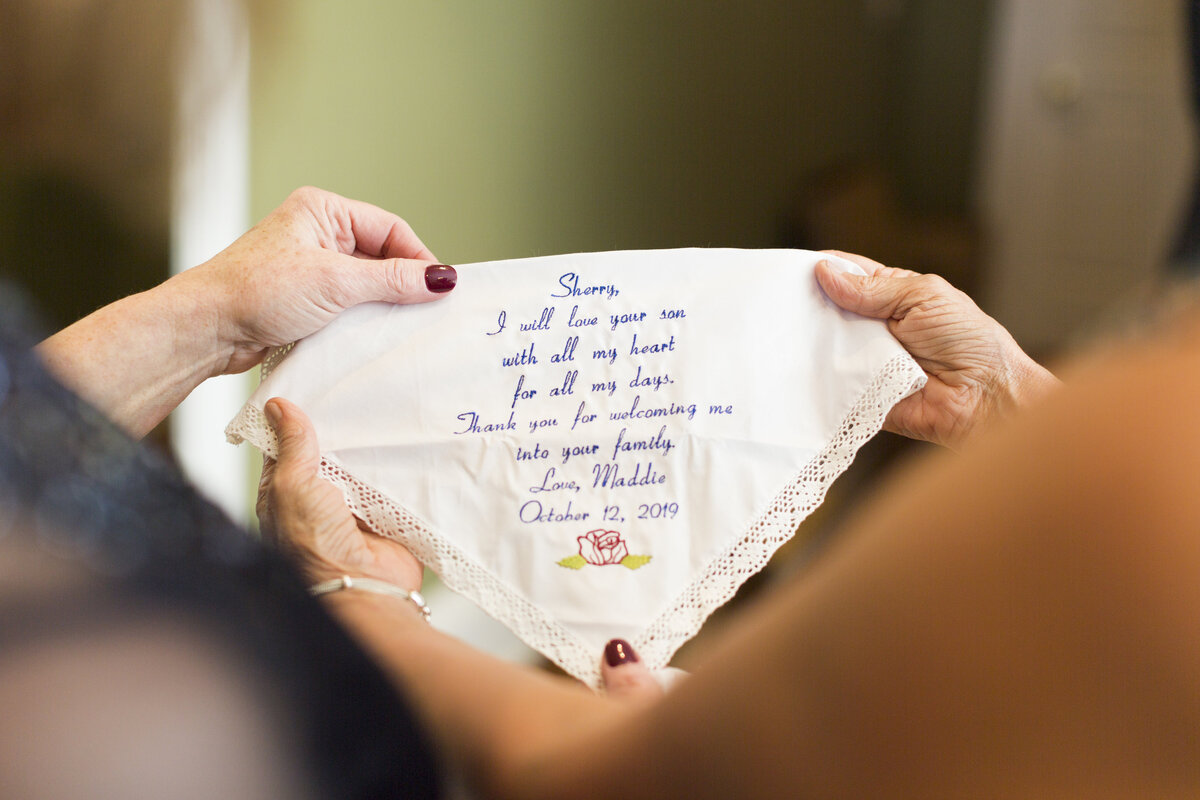 Sherry,
I will love your son
with all my heart
for all my days.
Thank you for welcoming me
into your family.
Love, Maddie
October 12, 2019